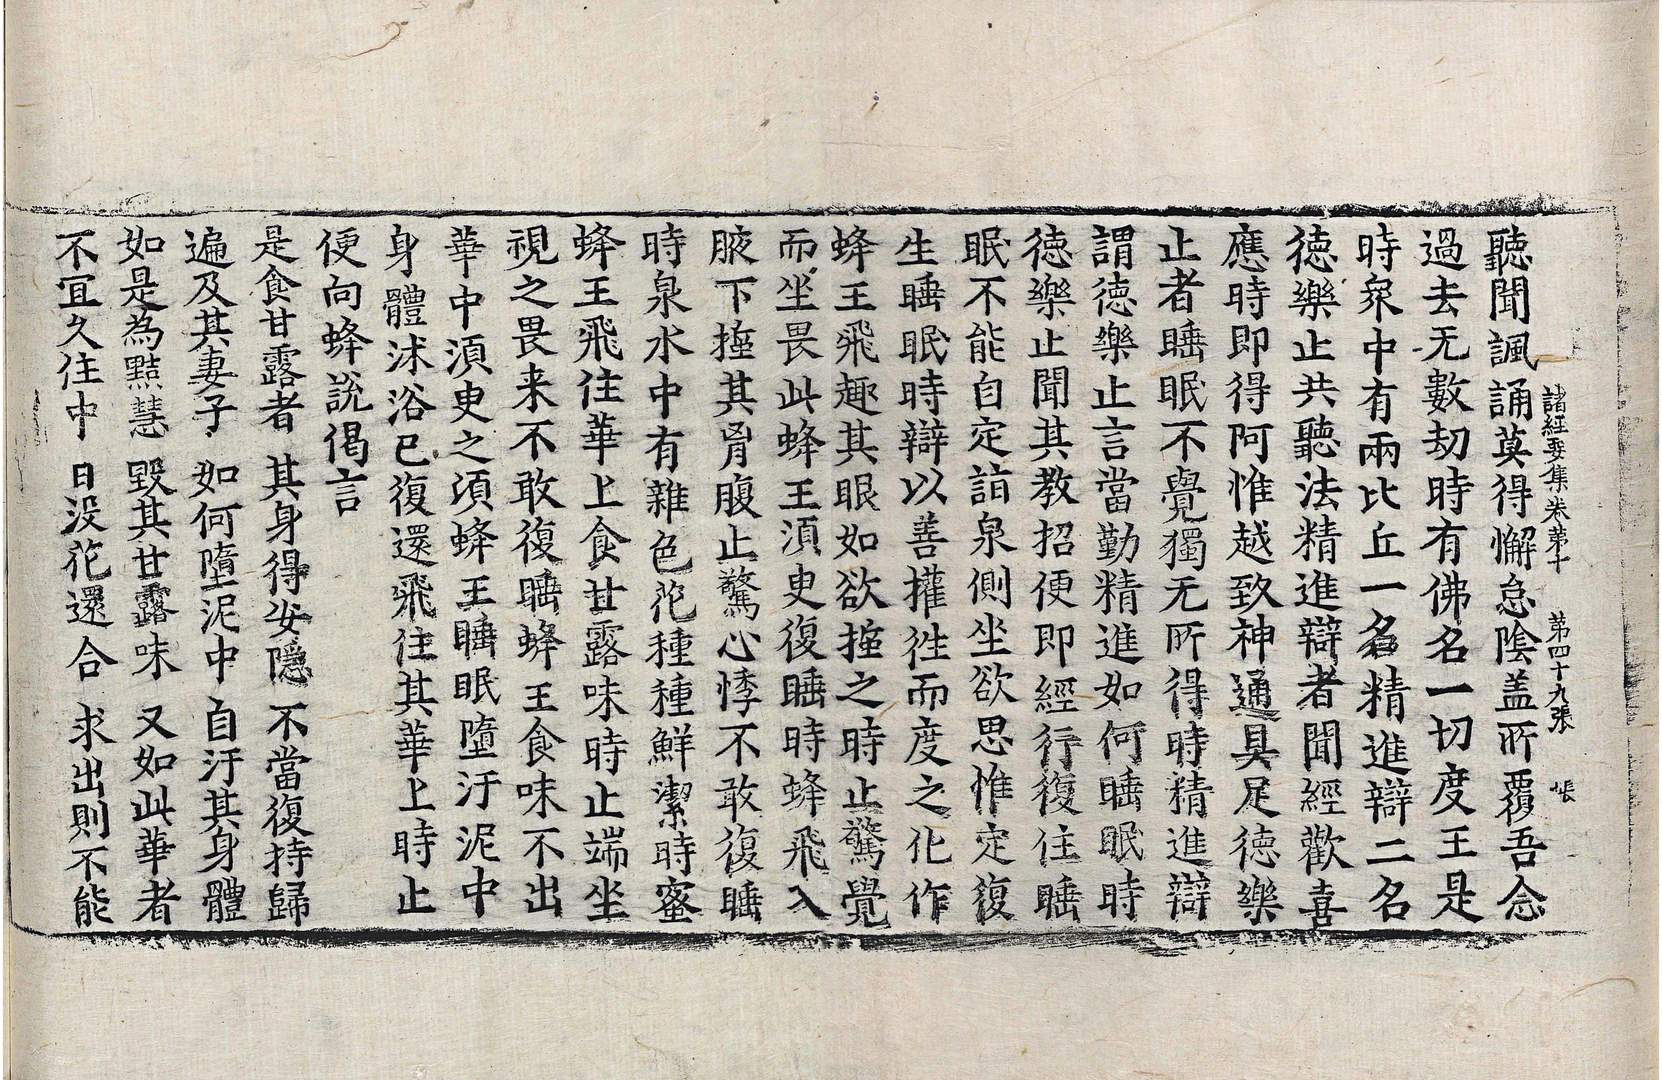 諸經要集卷第十　第四十九張　帳
聽聞諷誦莫得懈怠陰盖所覆吾念
過去无數劫時有佛名一切度王是
時衆中有兩比丘一名精進辯二名
德樂止共聽法精進辯者聞經歡喜
應時即得阿惟越致神通具足德樂
止者睡眠不覺獨无所得時精進辯
謂德樂止言當勤精進如何睡眠時
德樂止聞其教招便即經行復住睡
眠不能自定詣泉側坐欲思惟定復
生睡眠時辯以善權徃而度之化作
蜂王飛趣其眼如欲螫之時止驚覺
而坐畏此蜂王須臾復睡時蜂飛入
腋下螫其胷腹止驚心悸不敢復睡
時泉水中有雜色花種種鮮潔時蜜
蜂王飛住華上食甘露味時止端坐
視之畏来不敢復睡蜂王食味不出
華中須臾之須蜂王睡眠墮汙泥中
身體沭浴已復還飛住其華上時止
便向蜂說偈言
是食甘露者　其身得安隱　不當復持歸
遍及其妻子　如何墮泥中　自汙其身體
如是為黠慧　毀其甘露味　又如此華者
不宜久住中　日没花還合　求出則不能